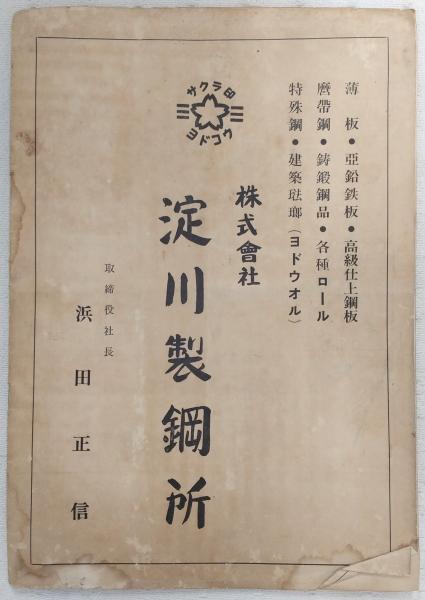 薄板●亜鉛鉄板●高級仕上鋼板
磨帶鋼●鋳鍛鋼品●各種ロール
特殊鋼●建築琺瑯(ヨドウオル)
サクラ印
ヨドコウ
株式會社
淀川製鋼所
取締役社長
浜田正信